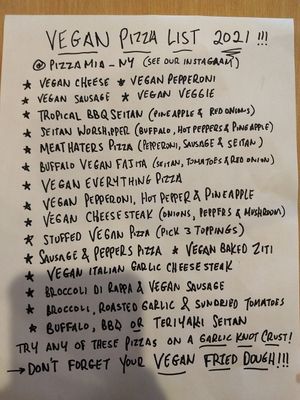 VEGAN PIZZA LIST 2021 !!!
@ PIZZAMIA_NY (SEE OUR INSTAGRAM)
★ VEGAN CHEESE ★ VEGAN PEPPERONI
★ VEGAN SAUSAGE ★ VEGAN VEGGIE
★ TROPICAL BBQ SEITAN (PINEAPPLE & RED ONIONS)
★ SEITAN WORSHIPPER (BUFFALO, HOT PEPPERS & PINEAPPLE)
★ MEAT HATERS PIZZA (PEPPERONI, SAUSAGE & SEITAN)
★ BUFFALO VEGAN FAJITA (SEITAN, TOMATOES & RED ONION)
★ VEGAN EVERYTHING PIZZA
★ VEGAN PEPPERONI, HOT PEPPER & PINEAPPLE
★ VEGAN CHEESE STEAK (ONIONS, PEPPERS & MUSHROOM)
★ STUFFED VEGAN PIZZA (PICK 3 TOPPINGS)
★ SAUSAGE & PEPPERS PIZZA ★ VEGAN BAKED ZITI
★ VEGAN ITALIAN GARLIC CHEESE STEAK
★ BROCCOLI DI RAPPA & VEGAN SAUSAGE
★ BROCCOLI, ROASTED GARLIC & SUNDRIED TOMATOES
★ BUFFALO, BBQ OR TERIYAKI SEITAN
TRY ANY OF THESE PIZZAS ON A GARLIC KNOT CRUST!
→ DON'T FORGET YOUR VEGAN FRIED DOUGH!!!